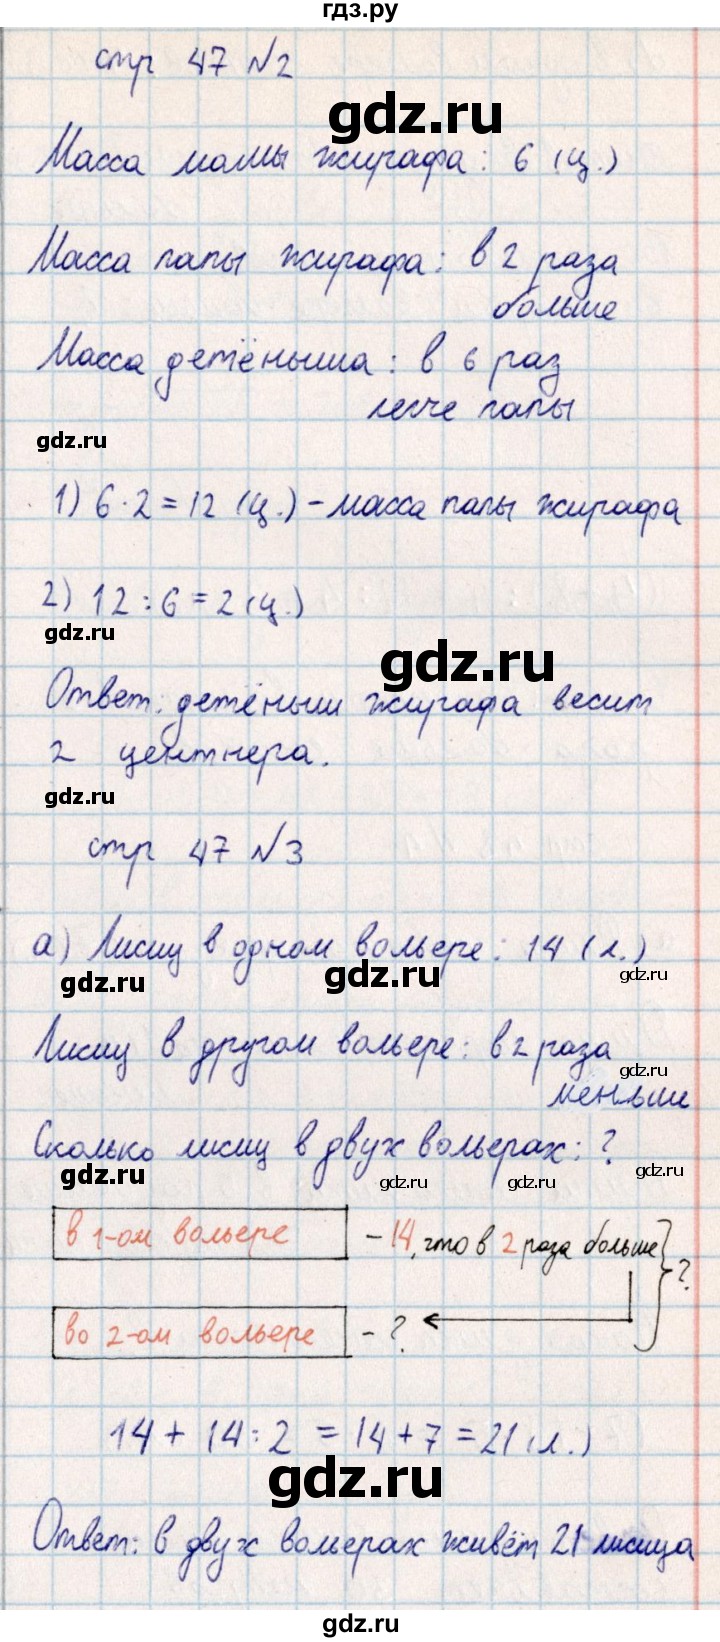 гдз.ру
стр 47 №2
gdz.ru
Масса мамы жирафа: 6 (ц.)
Масса папы жирафа: в 2 раза
больше
Масса детёныша: в 6 раз
легче папы
gdz.ru
1) 6·2=12 (ц.) – масса папы жирафа
2) 12:6=2(ц.)
gdz.ru
gdz.ru
Ответ: детёныш жирафа весит
2 центнера.
gdz.ru
стр 47 №3
а) Лисиц в одном вольере: 14 (л.)
gdz.ru
gdz.ru
gdz.ru
Лисиц в другом вольере: в 2 раза
gdz.ru
меньше
Сколько лисиц в двух вольерах: ?
gdz.ru
gdz.ru
gdz.ru
gdz.ru
в 1-ом вольере – 14, что в 2 раза больше
?
во 2-ом вольере – ?
14 + 14:2 = 14+7=21(л.)
gdz.ru
Ответ: в двух вольерах живёт 21 лисица
gdz.ru